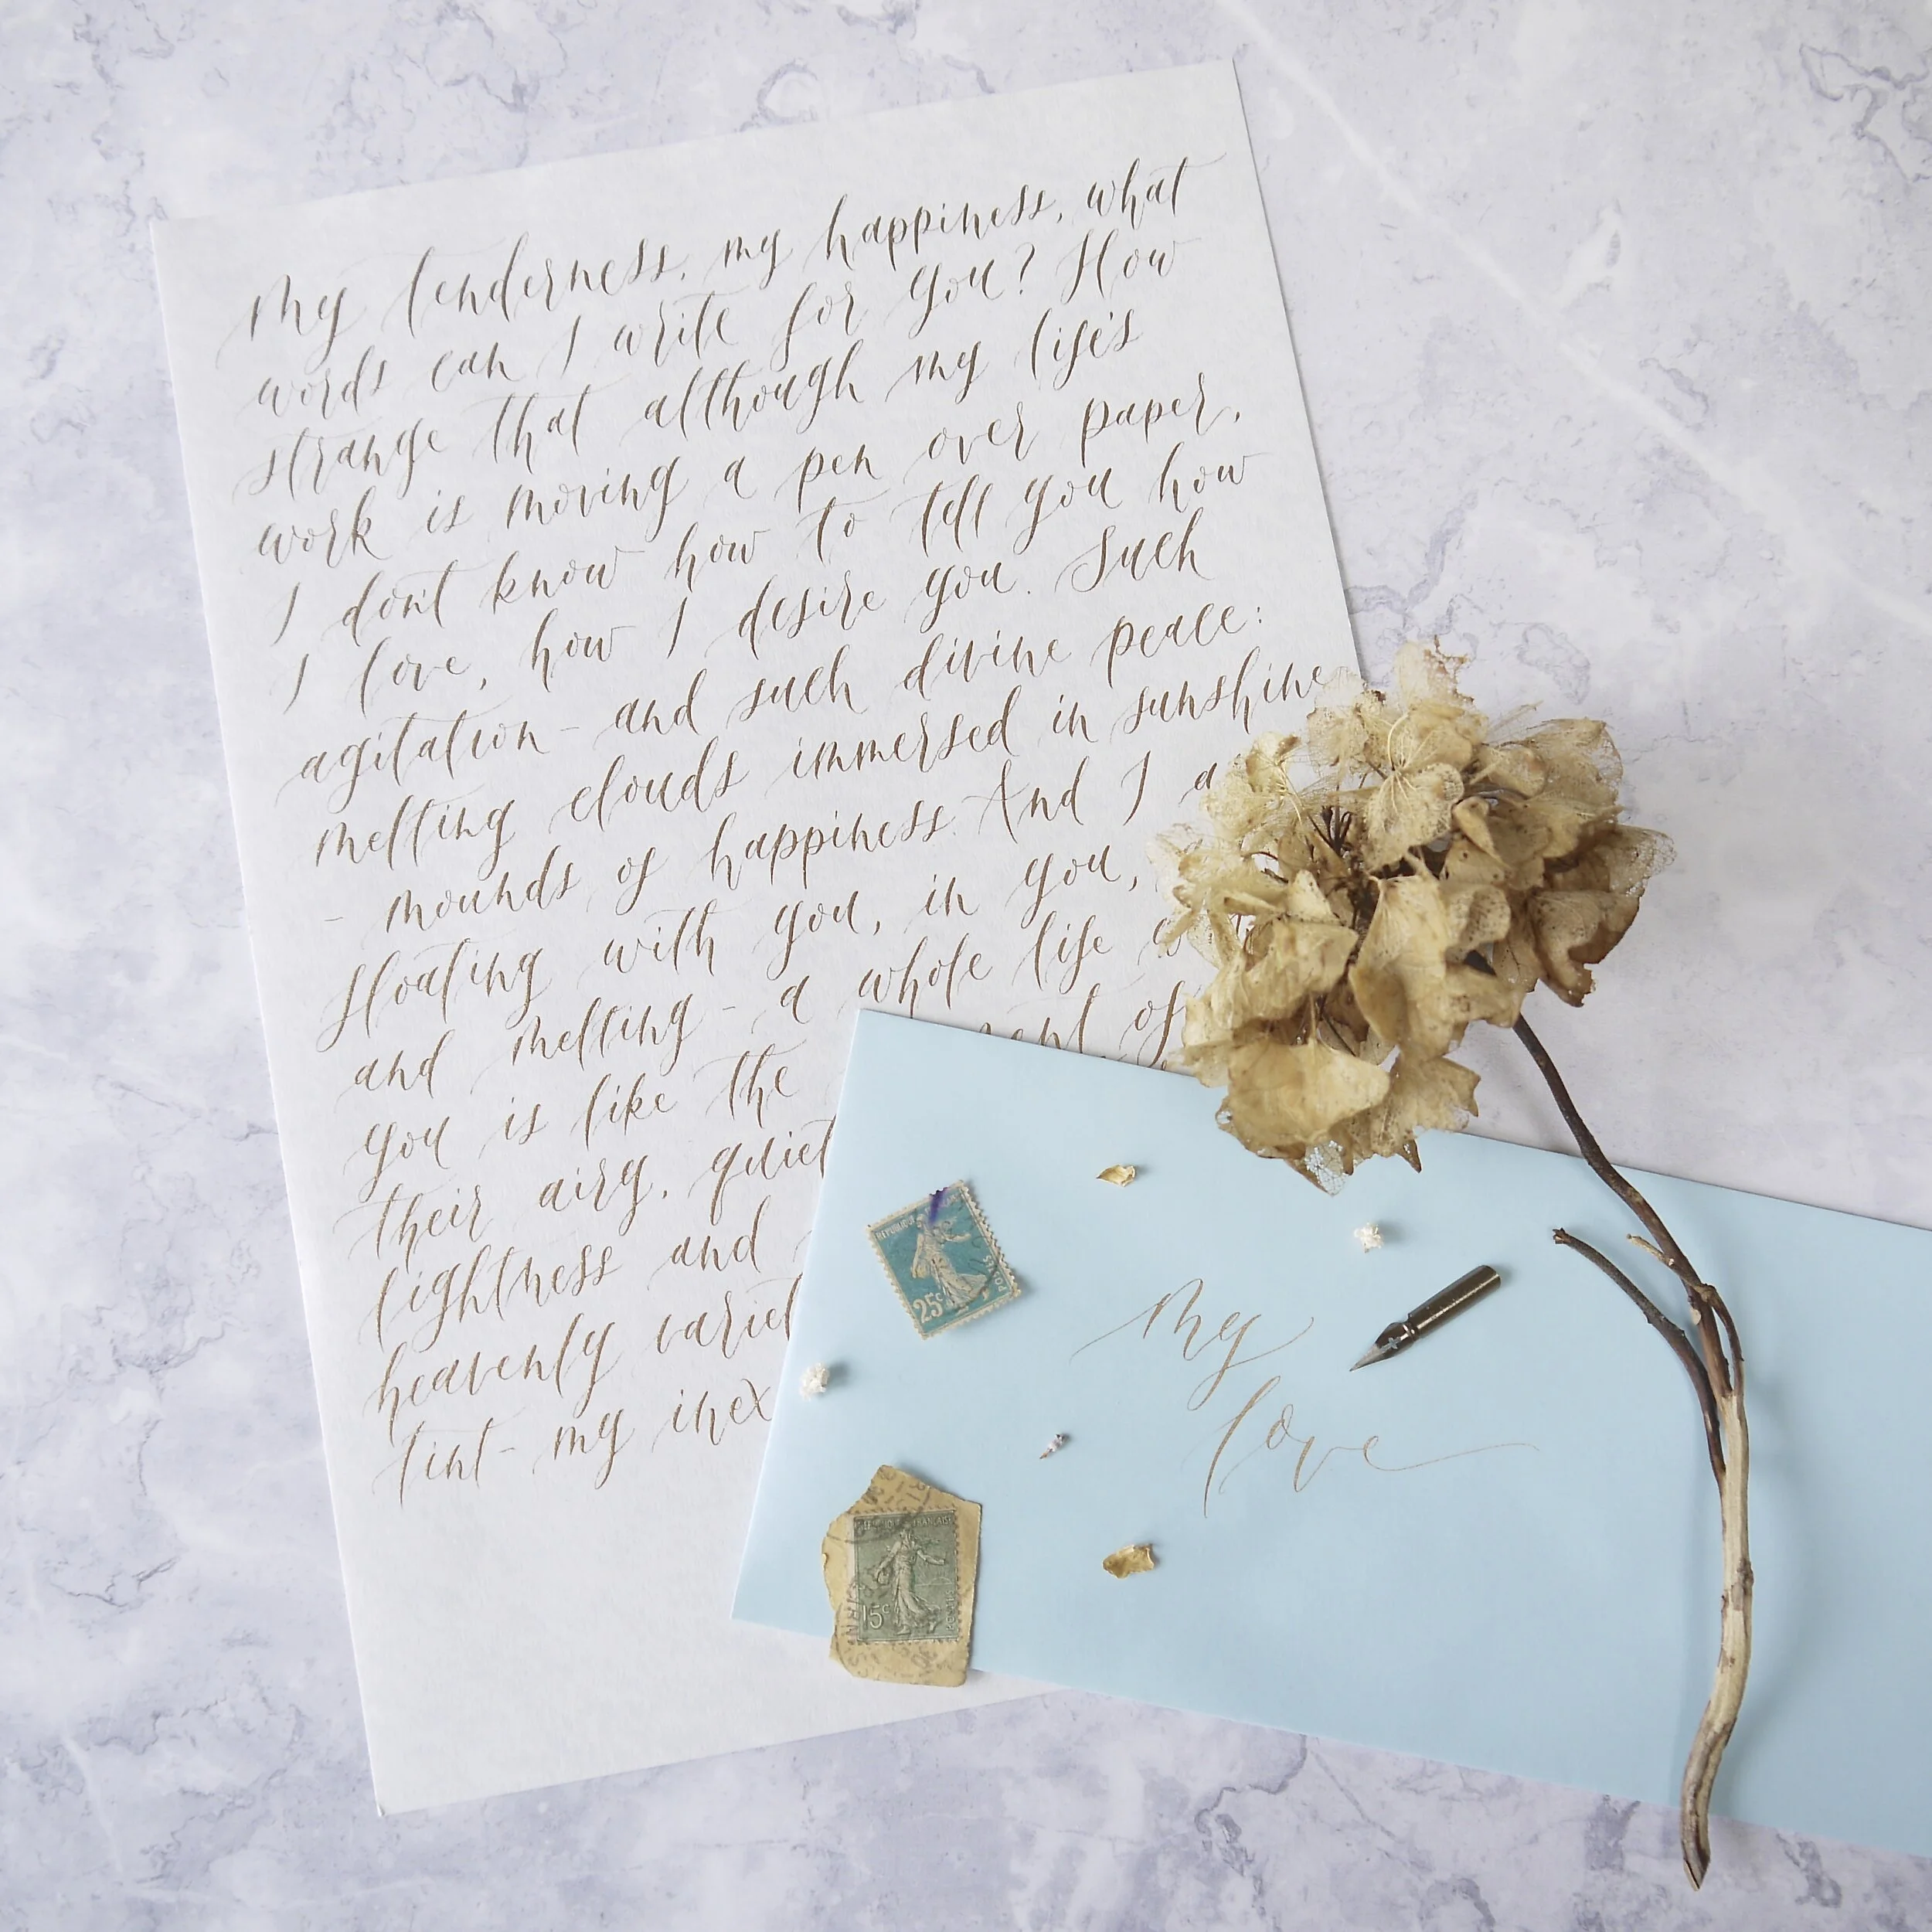 My tenderness, my happiness, what
words can I write for you? How
strange that although my life's
work is moving a pen over paper,
I don't know how to tell you how
I love, how I desire you. Such
agitation - and such divine peace:
melting clouds immersed in sunshine
- mounds of happiness. And I a
floating with you, in you,
and melting - a whole life
you is like the of
their airy, quiet
lightness and
heavenly variet
tint - my inex
REPUBLIQUE
25c
POSTES
my
love
FRANÇAISE
15c